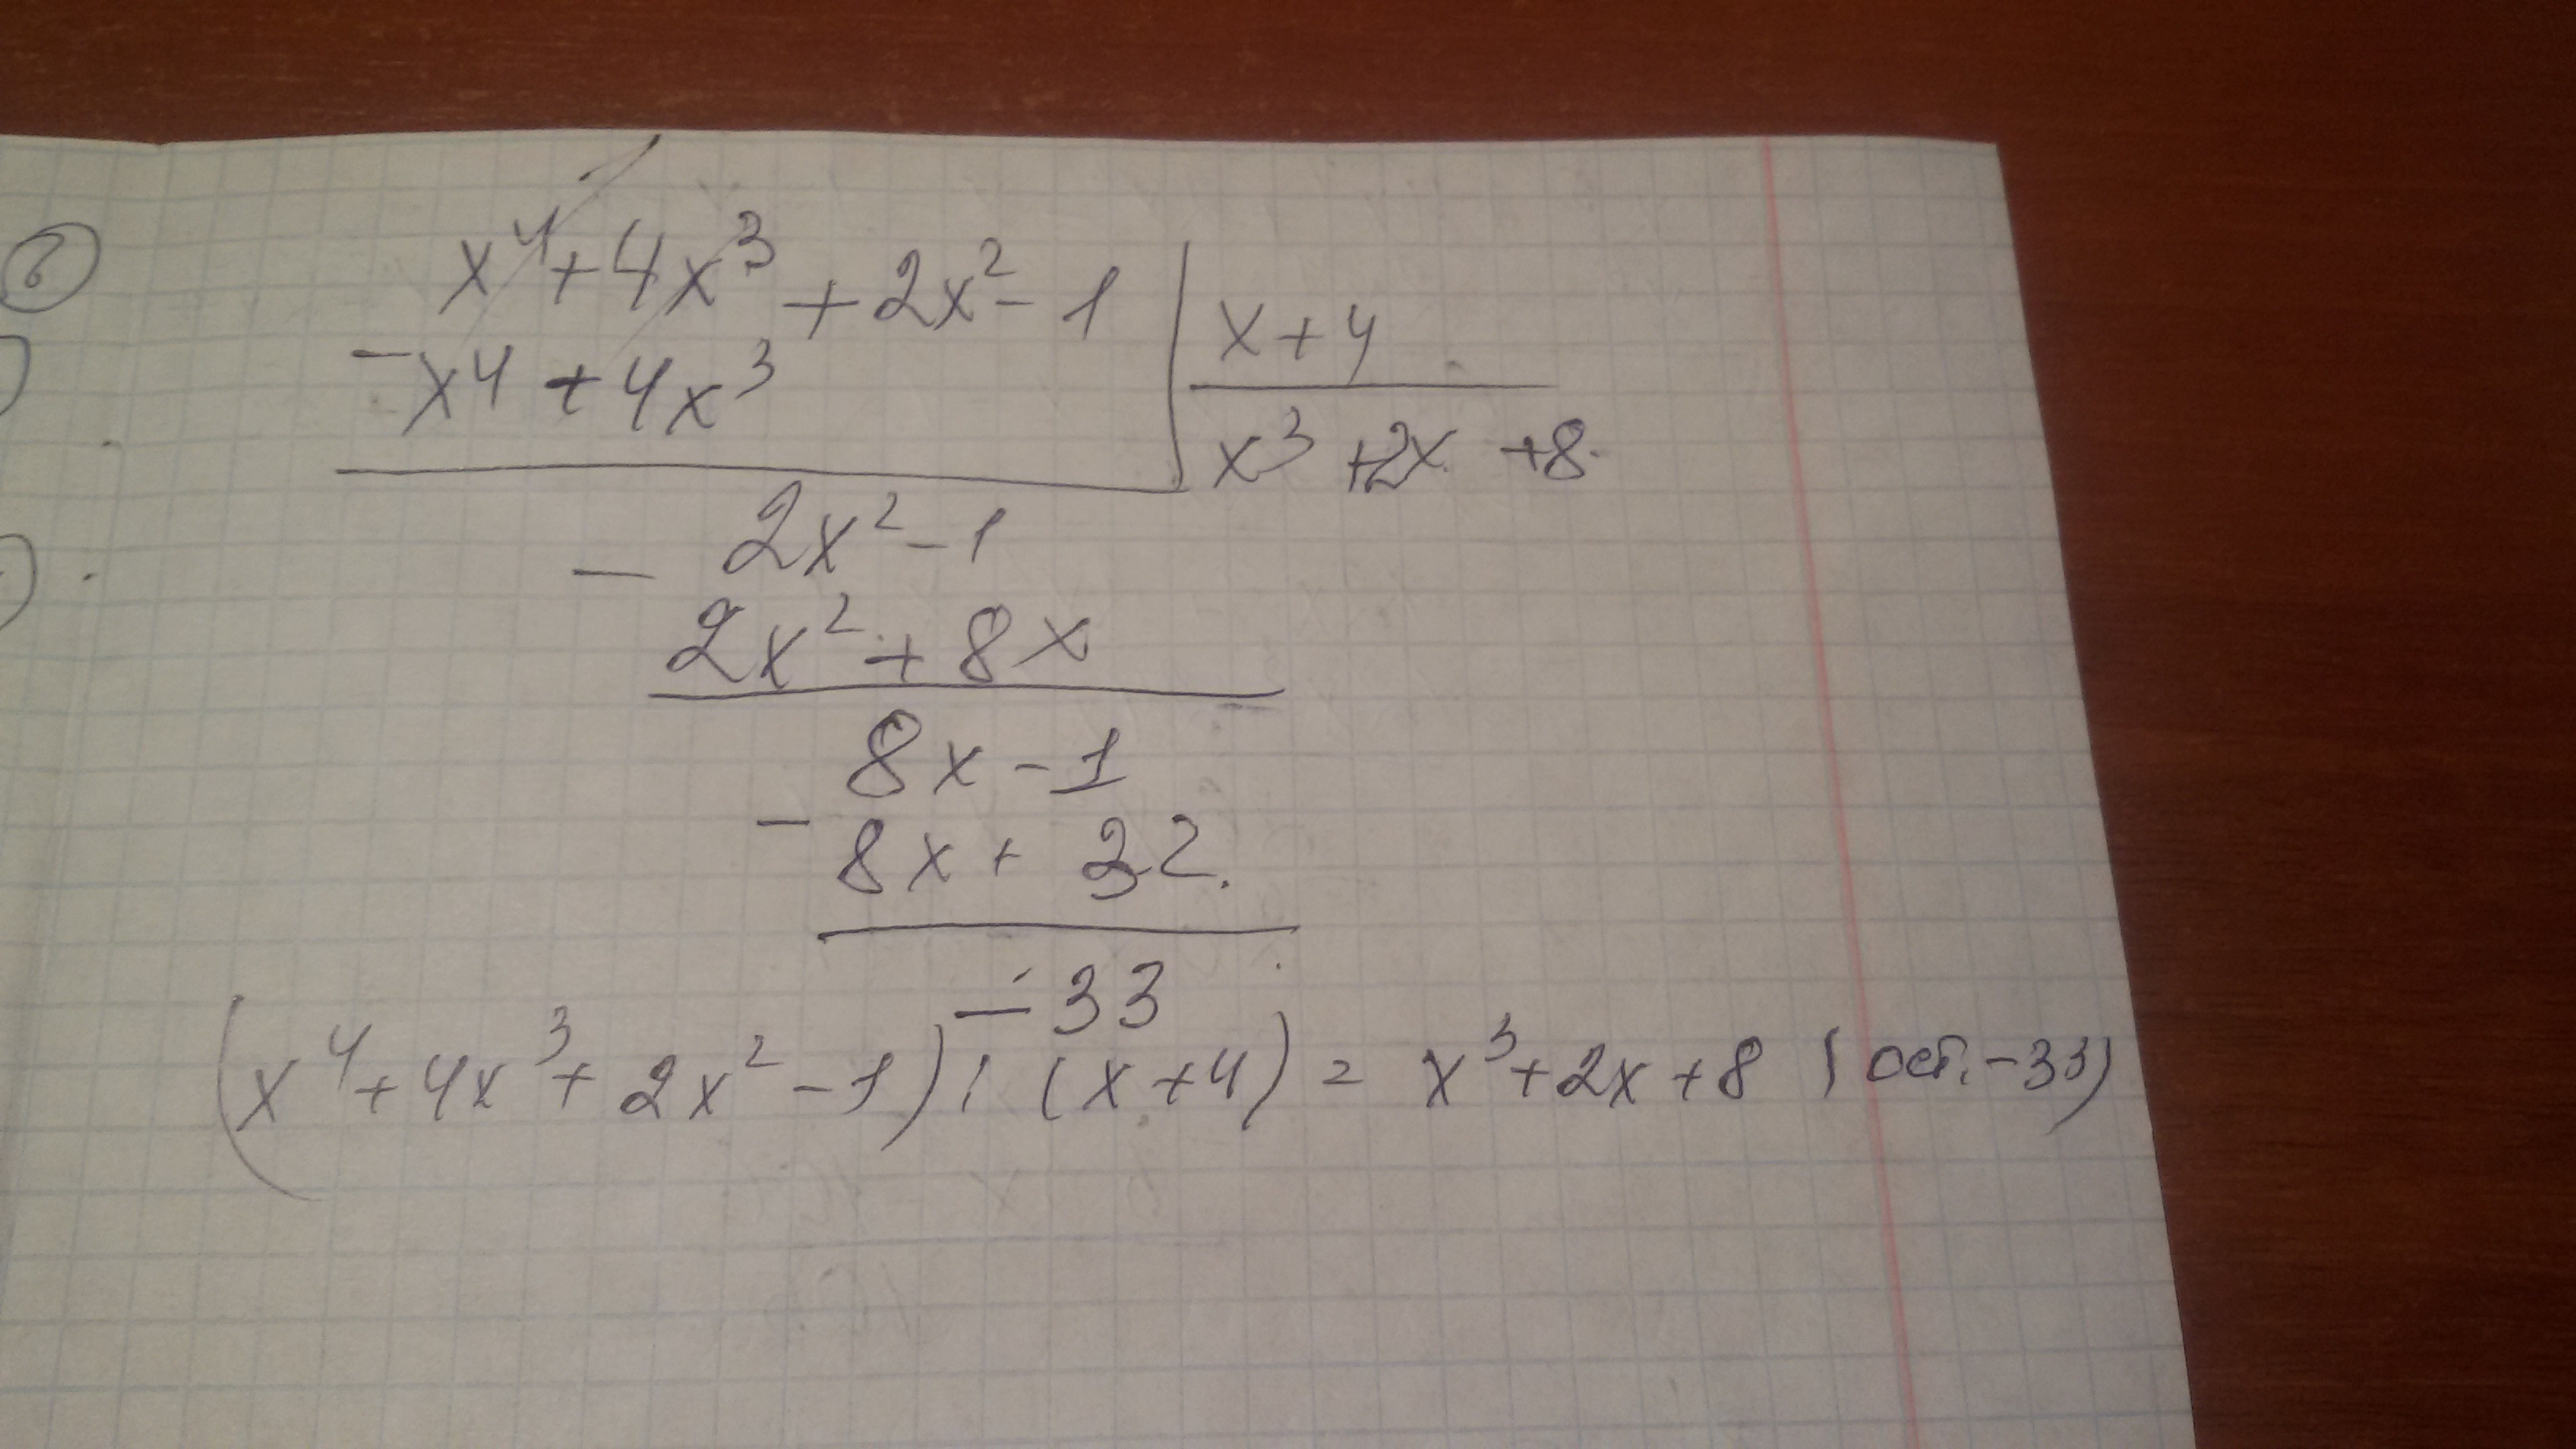 6
x⁴ + 4x³ + 2x² - 1 | x + 4
- x⁴ + 4x³ | x³ + 2x + 8
- 2x² - 1
2x² + 8x
8x - 1
- 8x + 32
- 33
(x⁴ + 4x³ + 2x² - 1) : (x + 4) = x³ + 2x + 8 (ост. - 33)